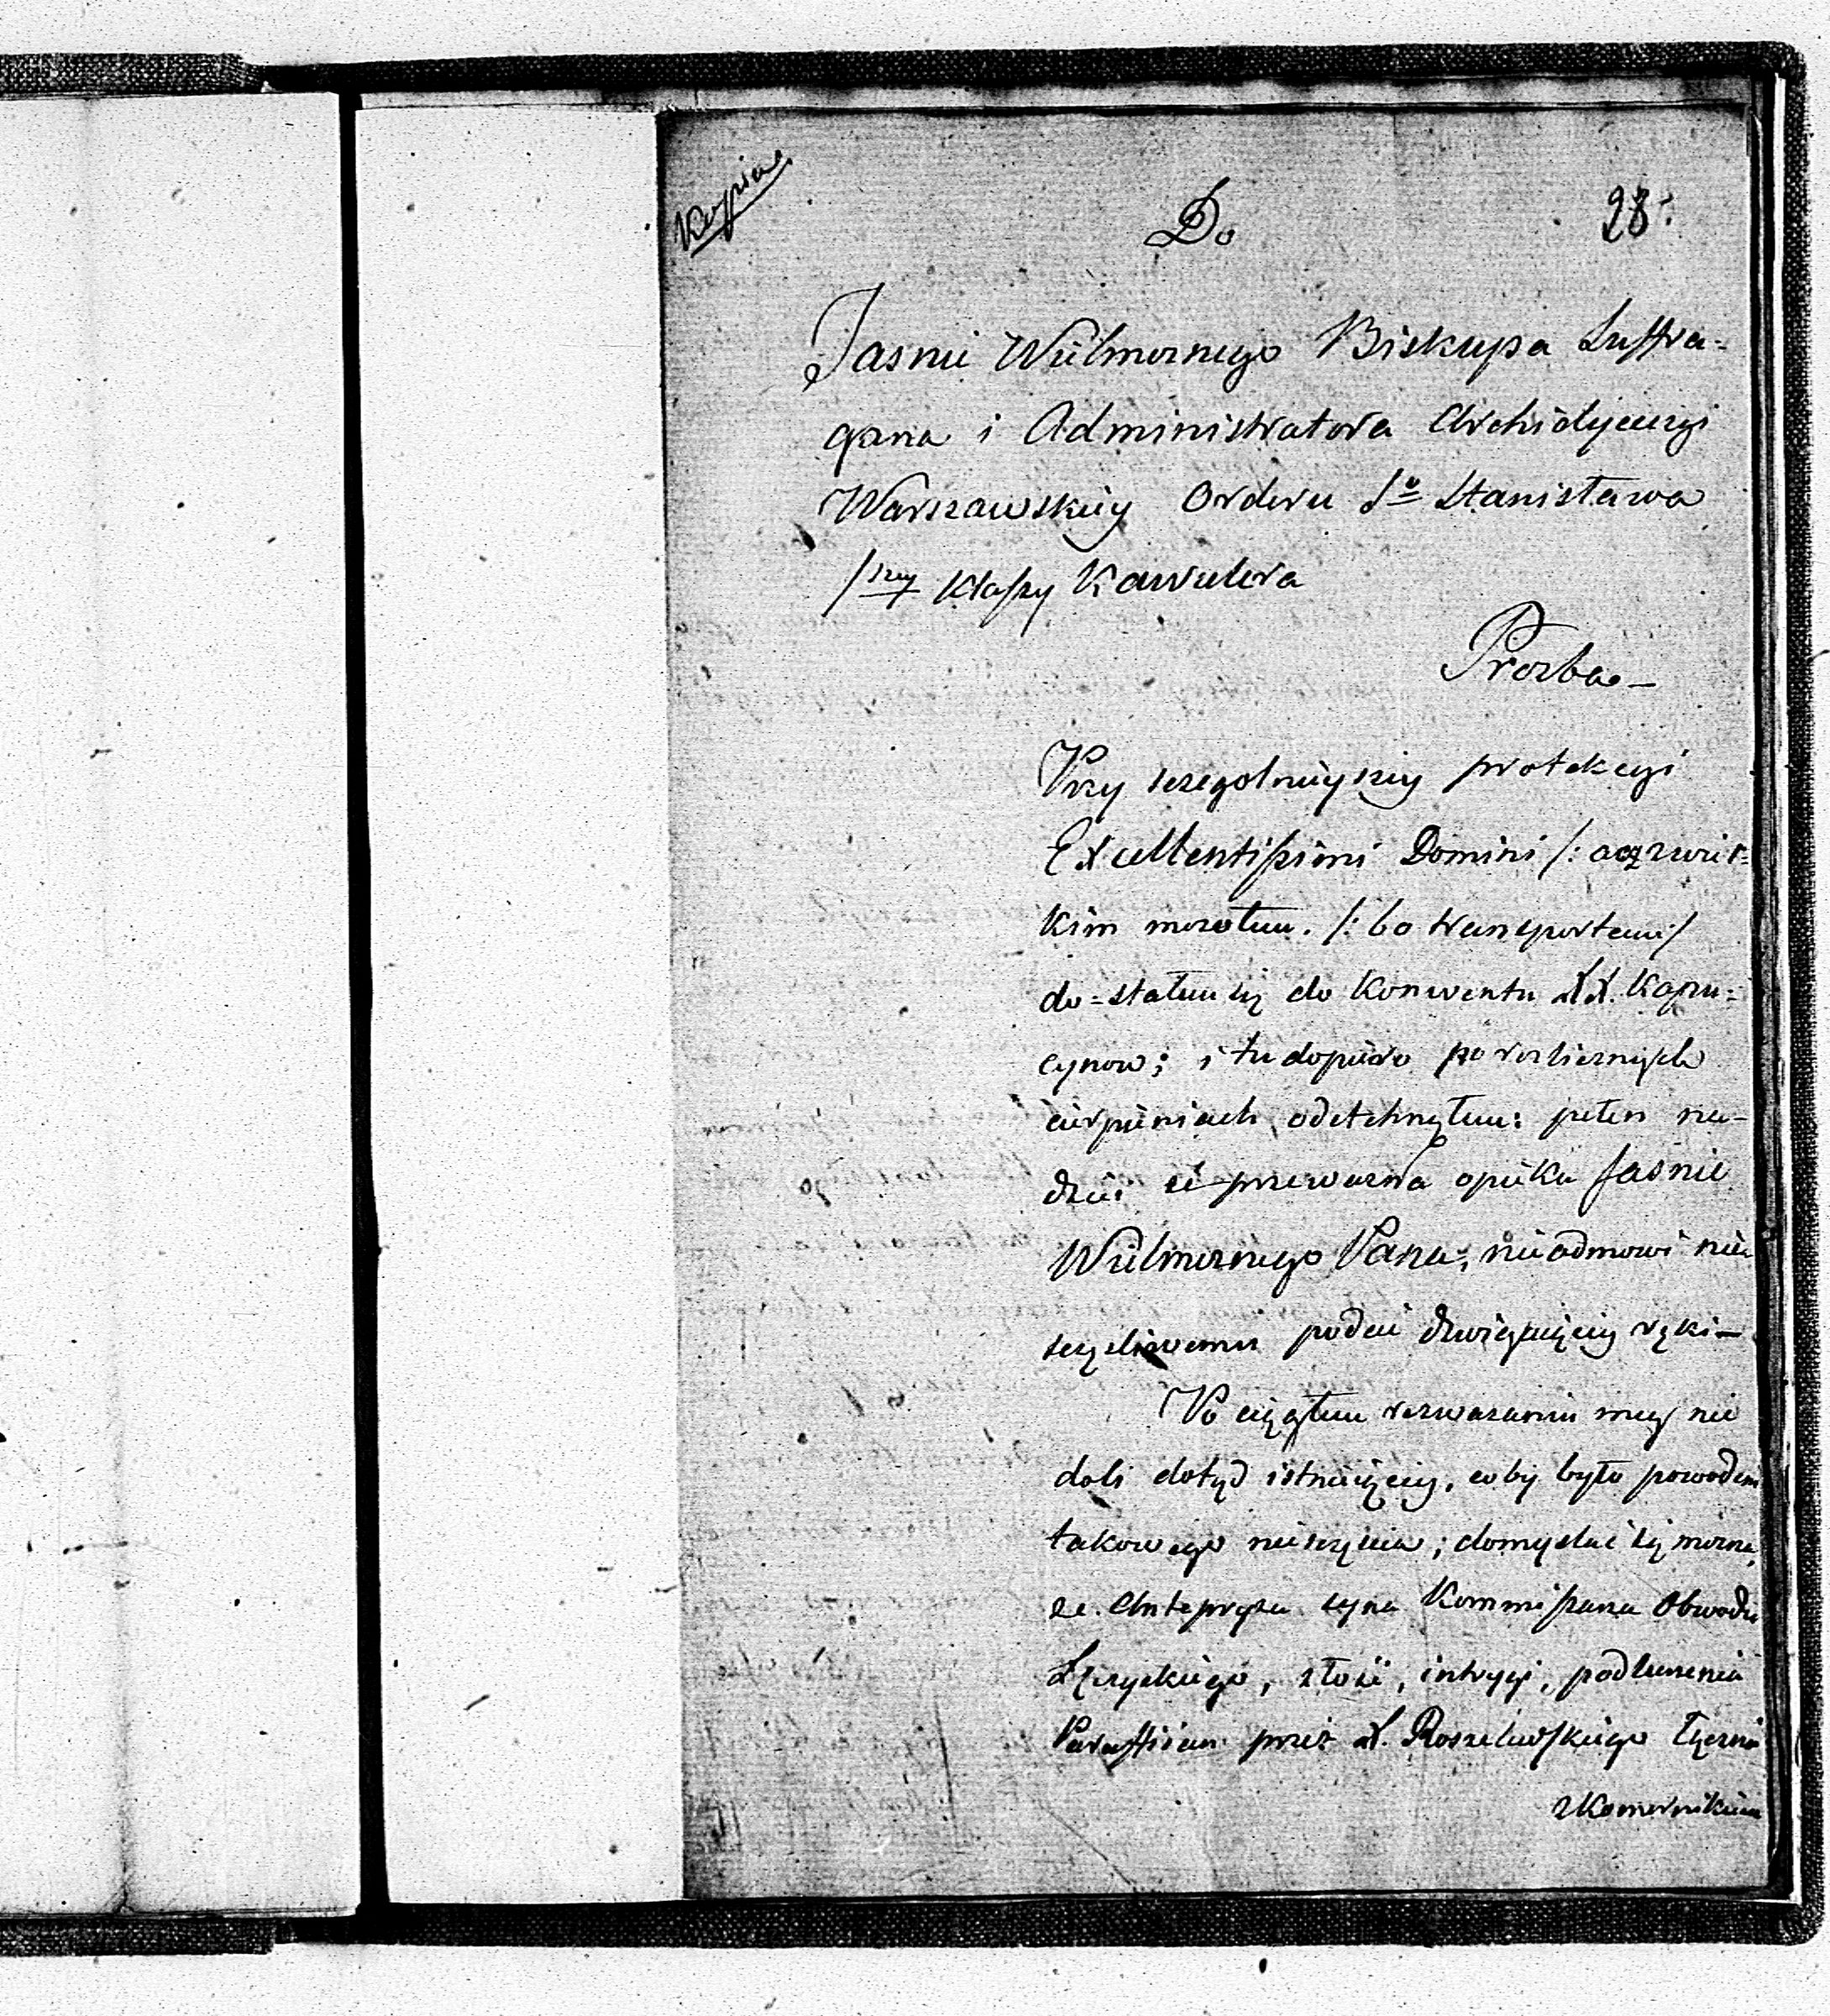 Kopia
Do
28.
Jasnie Wielmoznego Biskupa Suffra=
gana i Administratora Archidyecezyi
Warszawskiey Orderu Sº Stanisława
1szey Klassy Kawalera
Prozba –
Przy szczegolnieyszey protekcyi
Excellentissimi Domini /: acz z wiel=
kim mozołem. /: bo transportem :/
do=stałem się do Konwentu XX. Kapu=
cynow; i tu dopiero po rozlicznych
cierpieniach odetchnąłem: pełen na=
dziei iż przewazna opieka Jasnie
Wielmoznego Pana; nieodmowi nie=
szczęsliwemu podać dzwigaiącey ręki –
Po ciągłem rozwazaniu mey nie
doli dotąd istnieiącey, coby było powodem
takowego nieszczęscia; domyslać się mozna,
ze Antepryza syna Kommissarza Obwodu
Łęczyckiego, złość, intrygi, podburzenia
Paraffian przez X. Roszelewskiego łącznie
z Komornikiem